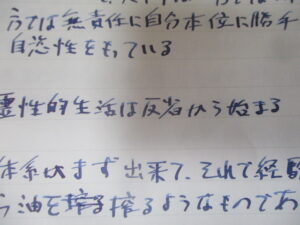 今では無責任に自分本位に勝手
自恣性をもっている
霊性的生活は反省から始まる
体系はまず出来て、それで経験
ら油を搾るようなものであ